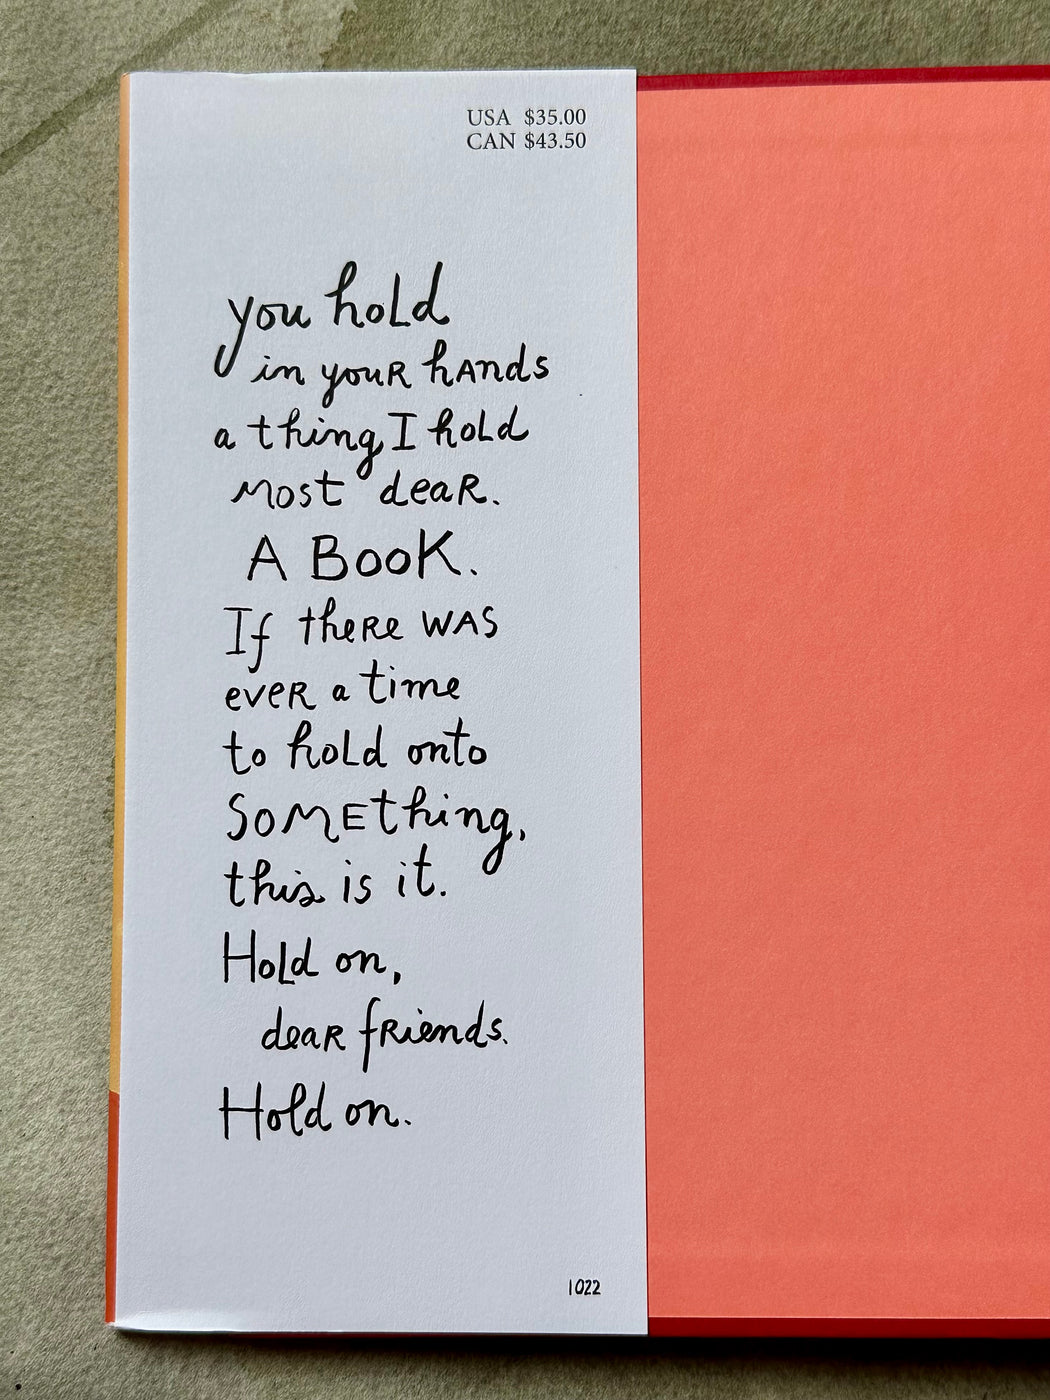 USA $35.00
CAN $43.50
you hold
in youR hANds
a thing I hold
Most deaR.
A BooK.
If theRe WAS
eveR a time
to hold onto
SoMEthing,
this is it.
Hold on,
deaR fRiends.
Hold on.
1022